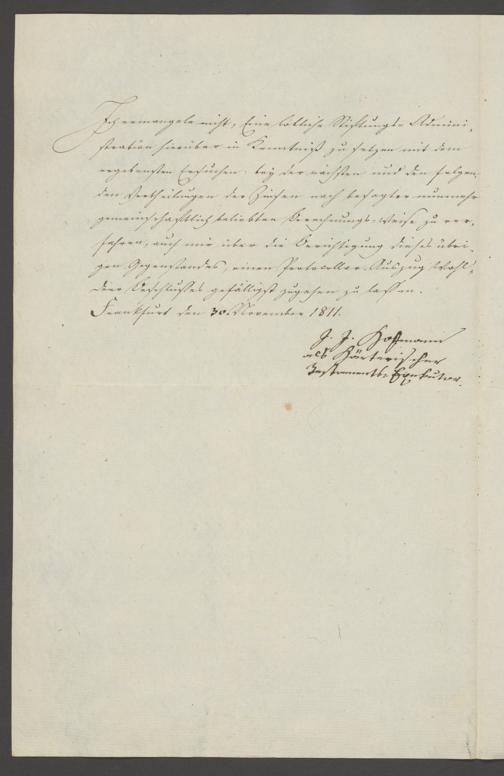 Ich ermangele nicht, Eine löbliche Stiftungs-Admini-
stration hierüber in Kenntniß zu setzen mit dem
ergebensten Ersuchen, bey der nächsten und den folgen-
den Vertheilungen der Zinsen nach besagter nunmehr
gemeinschaftlich beliebten Berechnungs-Weise zu ver-
fahren, auch mir über die Berichtigung dieses übri-
gen Gegenstandes, einen Protocollar-Auszug Wohl-
dero Beschlußes gefälligst zugehen zu lassen.
Frankfurt den 30. November 1811.
J. J. Hoffmann
als
Testaments-Exekutor.